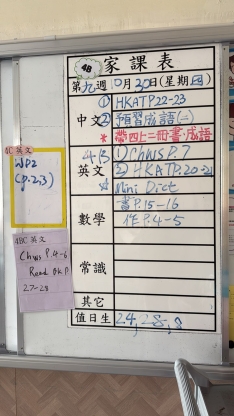 4B 家課表
第九週 10月20日(星期四)
中文 ① HKATP.22-23
② 預習成語(二)
* 帶四上二冊書、成語
英文 4B ① Chws P.7
② HKATP.20-21
☆ Mini Dict
數學 書P.15-16
作P.4-5
常識
其它
值日生 24, 28, 8
4C 英文
WP2
(p.2,3)
4BC 英文
Chws P.4-6
Read
27-28